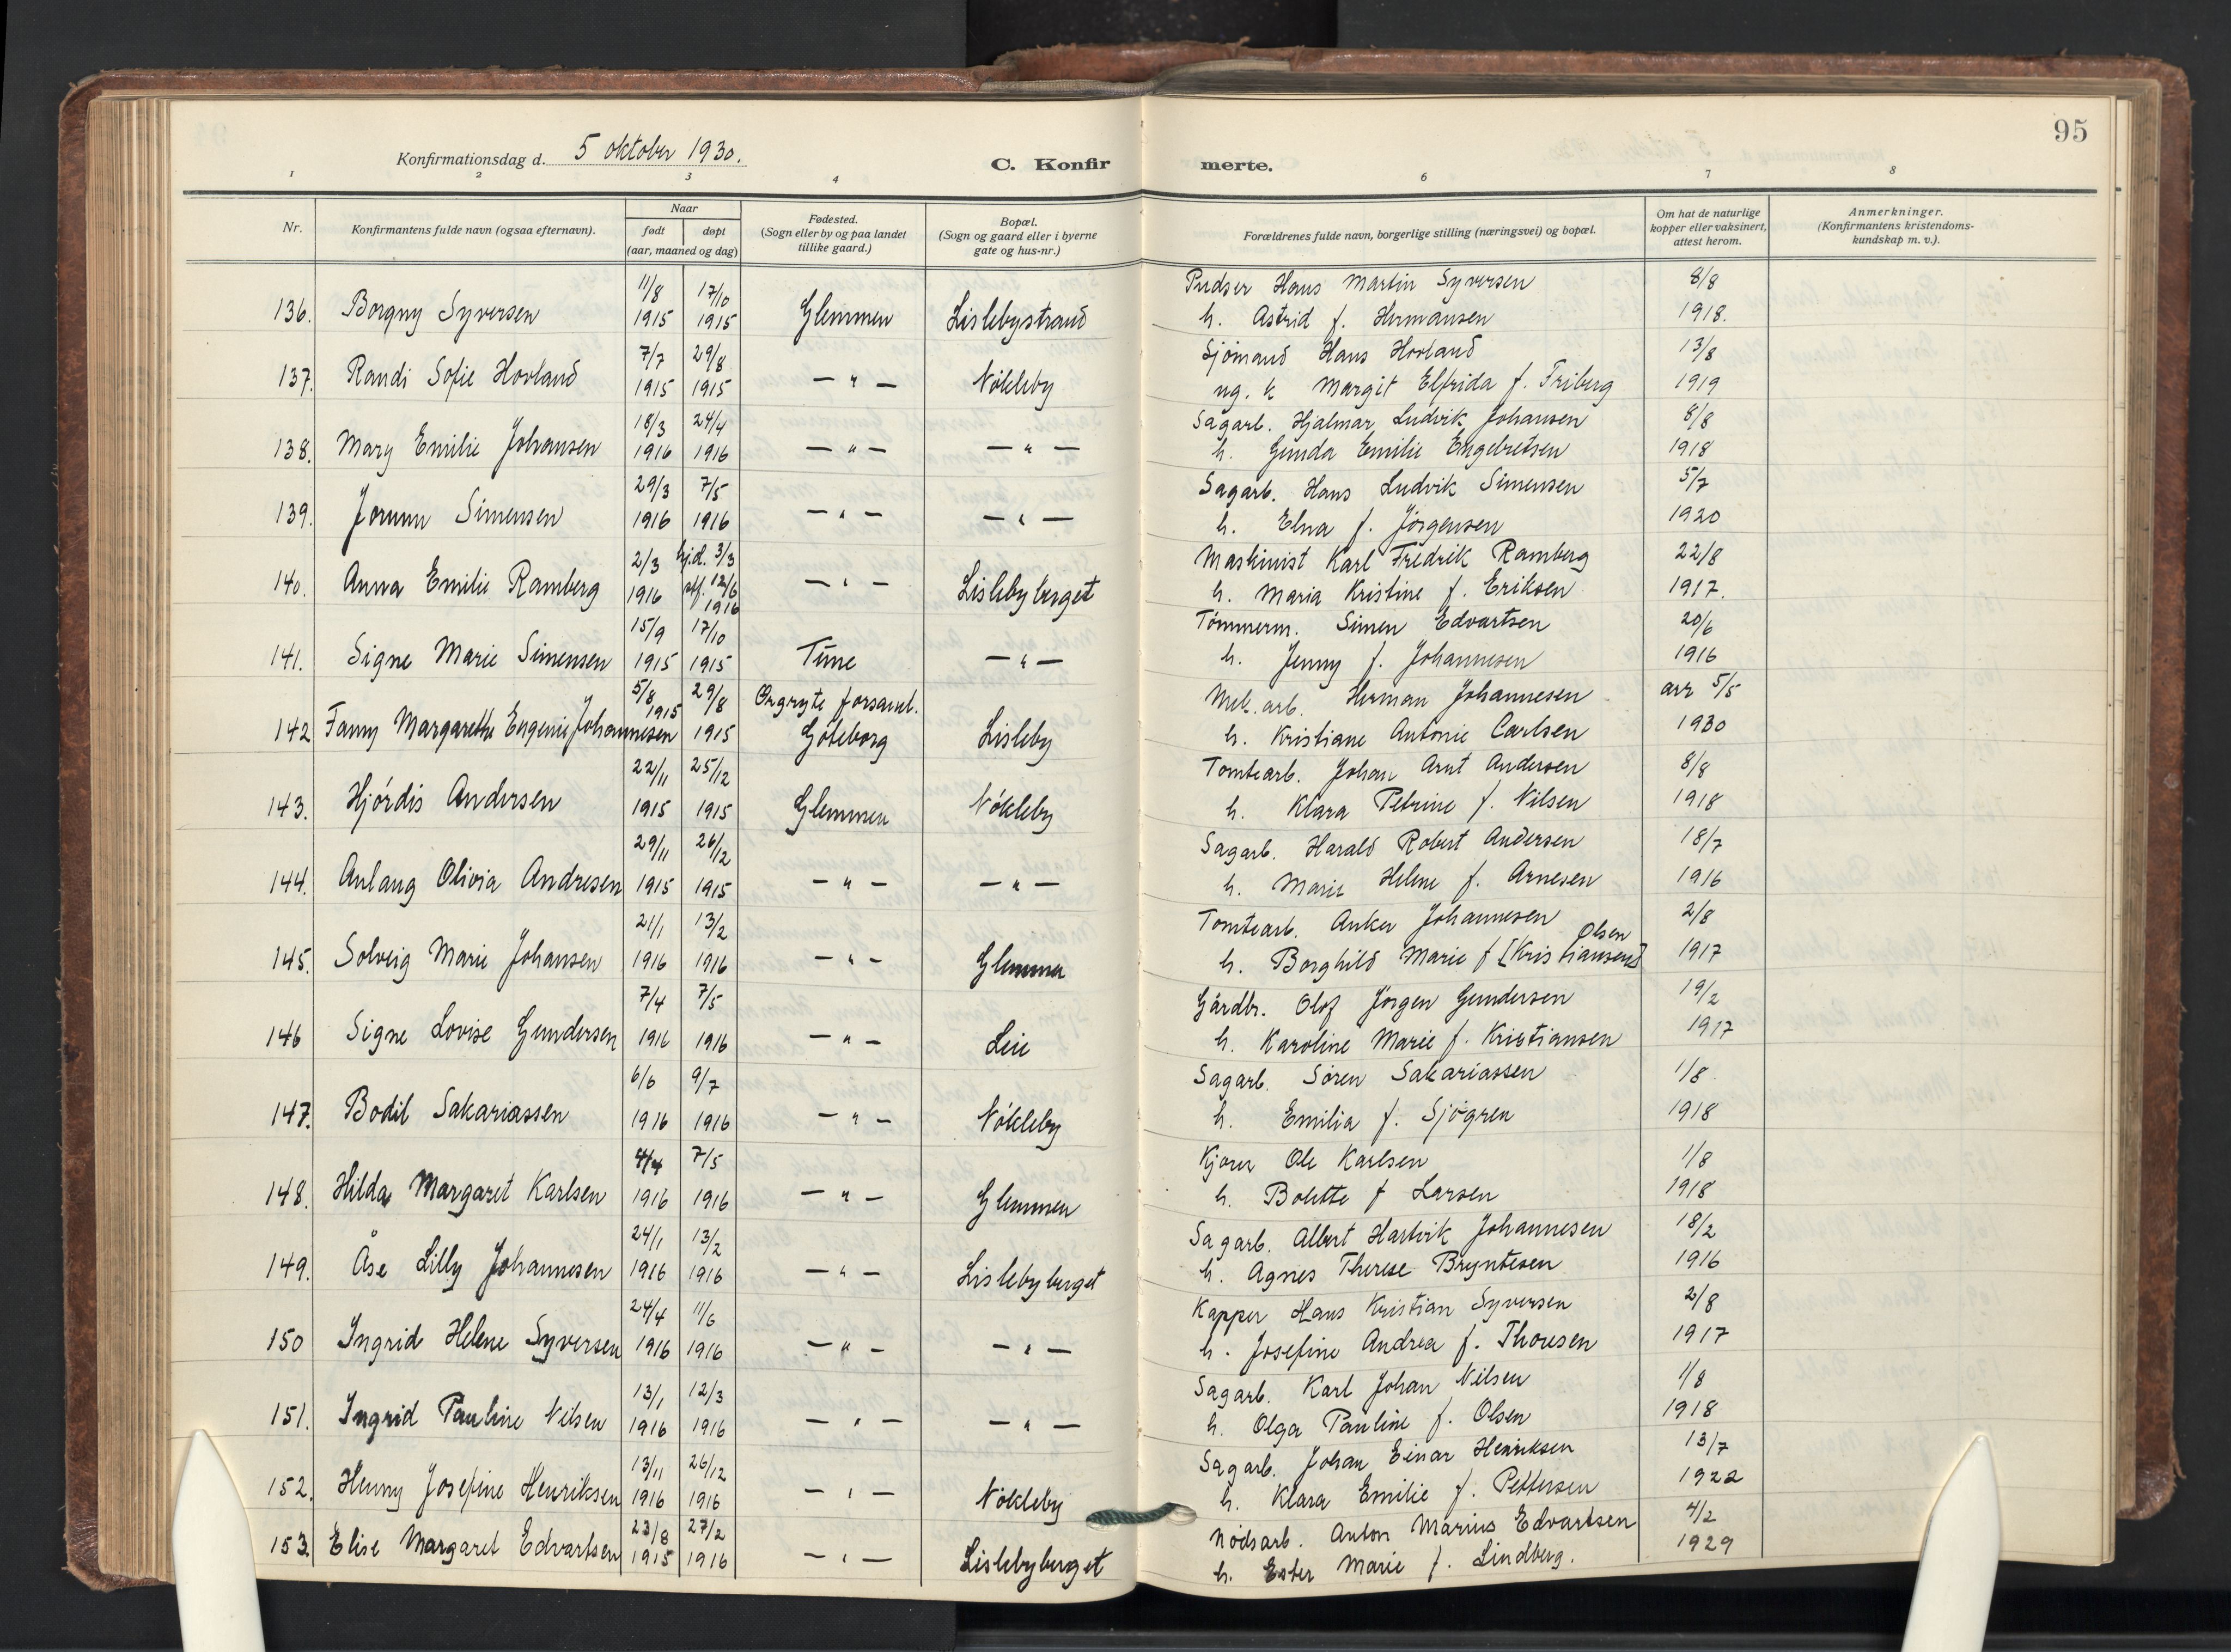 95
Konfirmationsdag d. 5 oktober 1930.
C. Konfir
merte.
1 2 3 4 6 7 8
Nr.
Konfirmantens fulde navn (ogsaa efternavn).
Naar
født døpt
(aar, maaned og dag)
Fødested.
(Sogn eller by og paa landet
tillike gaard.)
Bopæl.
(Sogn og gaard eller i byerne
gate og hus-nr.)
Forældrenes fulde navn, borgerlige stilling (næringsvei) og bopæl.
Om hat de naturlige
kopper eller vaksinert,
attest herom.
Anmerkninger.
(Konfirmantens kristendoms-
kundskap m. v.).
11/8 17/10 Pudser Hans Martin Syversen 8/8
136. Borgny Syversen 1915 1915 Glemmen Lislebystrand h. Astrid f. Hermansen 1918.
7/7 29/8 Sjömand Hans Hovland 13/8
137. Randi Sofie Hovland 1915 1915 — " — Nökleby ug. k Margit Elfrida f. Friberg 1919
18/3 24/4 Sagarb. Hjalmar Ludvik Johansen 8/8
138. Mary Emilie Johansen 1916 1916 — " — — " — h. Gunda Emilie Engebretsen 1918
29/3 7/5 Sagarb. Hans Ludvik Simensen 5/7
139. Jorunn Simensen 1916 1916 — " — — " — h. Elna f. Jörgensen 1920
2/3 hj.d. 3/3 Maskinist Karl Fredrik Ramberg 22/8
140. Anna Emilie Ramberg 1916 12/6 1916 — " — Lislebyberget h. Maria Kristine f. Eriksen 1917.
15/9 17/10 Tömmerm. Simen Edvartsen 20/6
141. Signe Marie Simensen 1915 1915 Tune — " — h. Jenny f. Johannesen 1916
5/8 1915 29/8 Örgryte forsaml. Mek. arb. Herman Johannesen arr 5/5
142 Fanny Margarethe Eugenie Johannesen 1915 Göteborg Lisleby h. Kristiane Antonie Carlsen 1930
22/11 25/12 Tomtearb. Johan Arnt Andersen 8/8
143. Hjördis Andersen 1915 1915 Glemmen Nökleby h. Klara Petrine f. Nilsen 1918
29/11 26/12 Sagarb. Harald Robert Andersen 18/7
144. Anlaug Olivia Andresen 1915 1915 — " — — " — h. Marie Helene f. Arnesen 1916
21/1 13/2 Tomtearb. Anker Johannesen 2/8
Olsen
145. Solveig Marie Johansen 1916 1916 — " — Glemmen h. Borghild Marie f [Kristiansen] 1917
7/4 7/5 Gårdbr. Olof Jörgen Gundersen 19/2
146 Signe Lovise Gundersen 1916 1916 — " — Leie h. Karoline Marie f. Kristiansen 1917
6/6 9/7 Sagarb. Sören Sakariassen 1/8
147. Bodil Sakariassen 1916 1916 — " — Nökleby h. Emilia f. Sjögren 1918
4/4 7/5 Kjörer Ole Karlsen 1/8
148. Hilda Margaret Karlsen 1916 1916 — " — Glemmen h. Bolette f Larsen 1918
24/1 13/2 Sagarb. Albert Hartvik Johannesen 18/2
149. Åse Lilly Johannesen 1916 1916 — " — Lislebyberget h. Agnes Therese Bryntesen 1916
24/4 11/6 Kapper Hans Kristian Syversen 2/8
150 Ingrid Helene Syversen 1916 1916 — " — — " — h. Josefine Andrea f. Thoresen 1917
13/1 12/3 Sagarb. Karl Johan Nilsen 1/8
151. Ingrid Pauline Nilsen 1916 1916 — " — — " — h. Olga Pauline f. Olsen 1918
13/11 26/12 Sagarb. Johan Einar Henriksen 13/7
152. Henny Josefine Henriksen 1916 1916 — " — Nökleby h. Klara Emilie f. Pettersen 1922
23/8 27/2 Nödsarb. Anton Marius Edvartsen 4/2
153. Elise Margaret Edvartsen 1915 1916 — " — Lislebyberget h. Ester Marie f. Lindberg. 1929